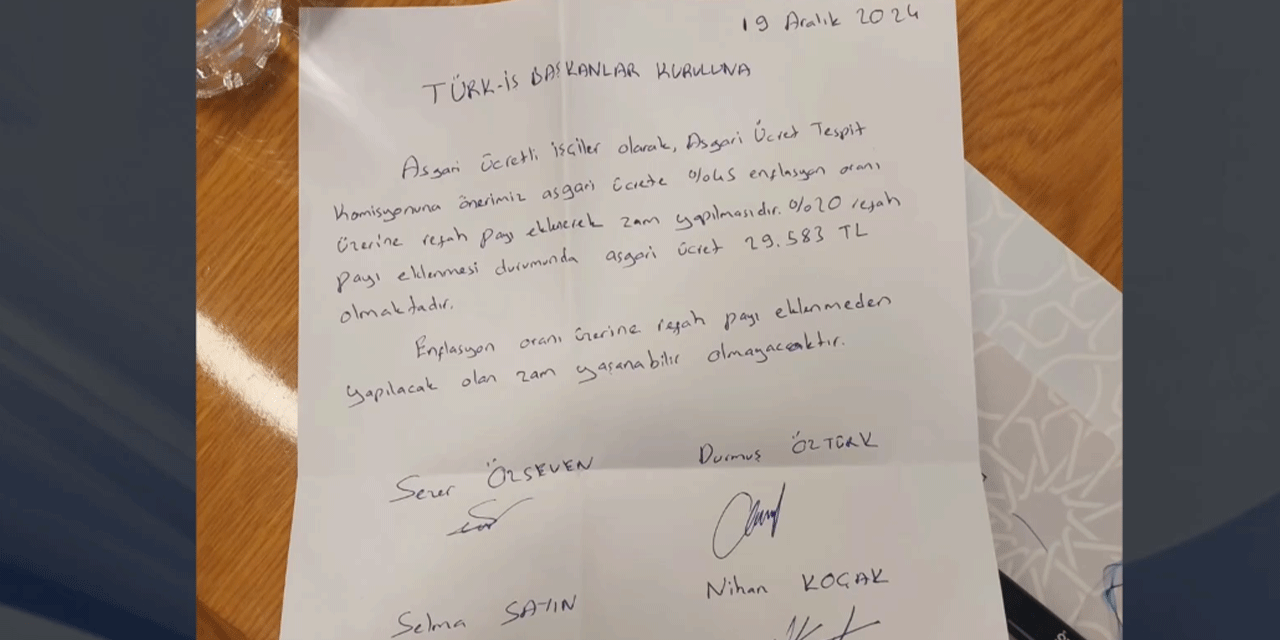 19 Aralık 2024
TÜRK-İS BAŞKANLAR KURULUNA
Asgari ücretli işçiler olarak, Asgari Ücret Tespit
Komisyonuna önerimiz asgari ücrete %45 enflasyon oranı
üzerine refah payı eklenerek zam yapılmasıdır. %20 refah
payı eklenmesi durumunda asgari ücret 29.583 TL
olmaktadır.
Enflasyon oranı üzerine refah payı eklenmeden
yapılacak olan zam yaşanabilir olmayacaktır.
Sezer ÖZSEVEN
Durmuş ÖZTÜRK
Selma SATIN
Nihan KOÇAK